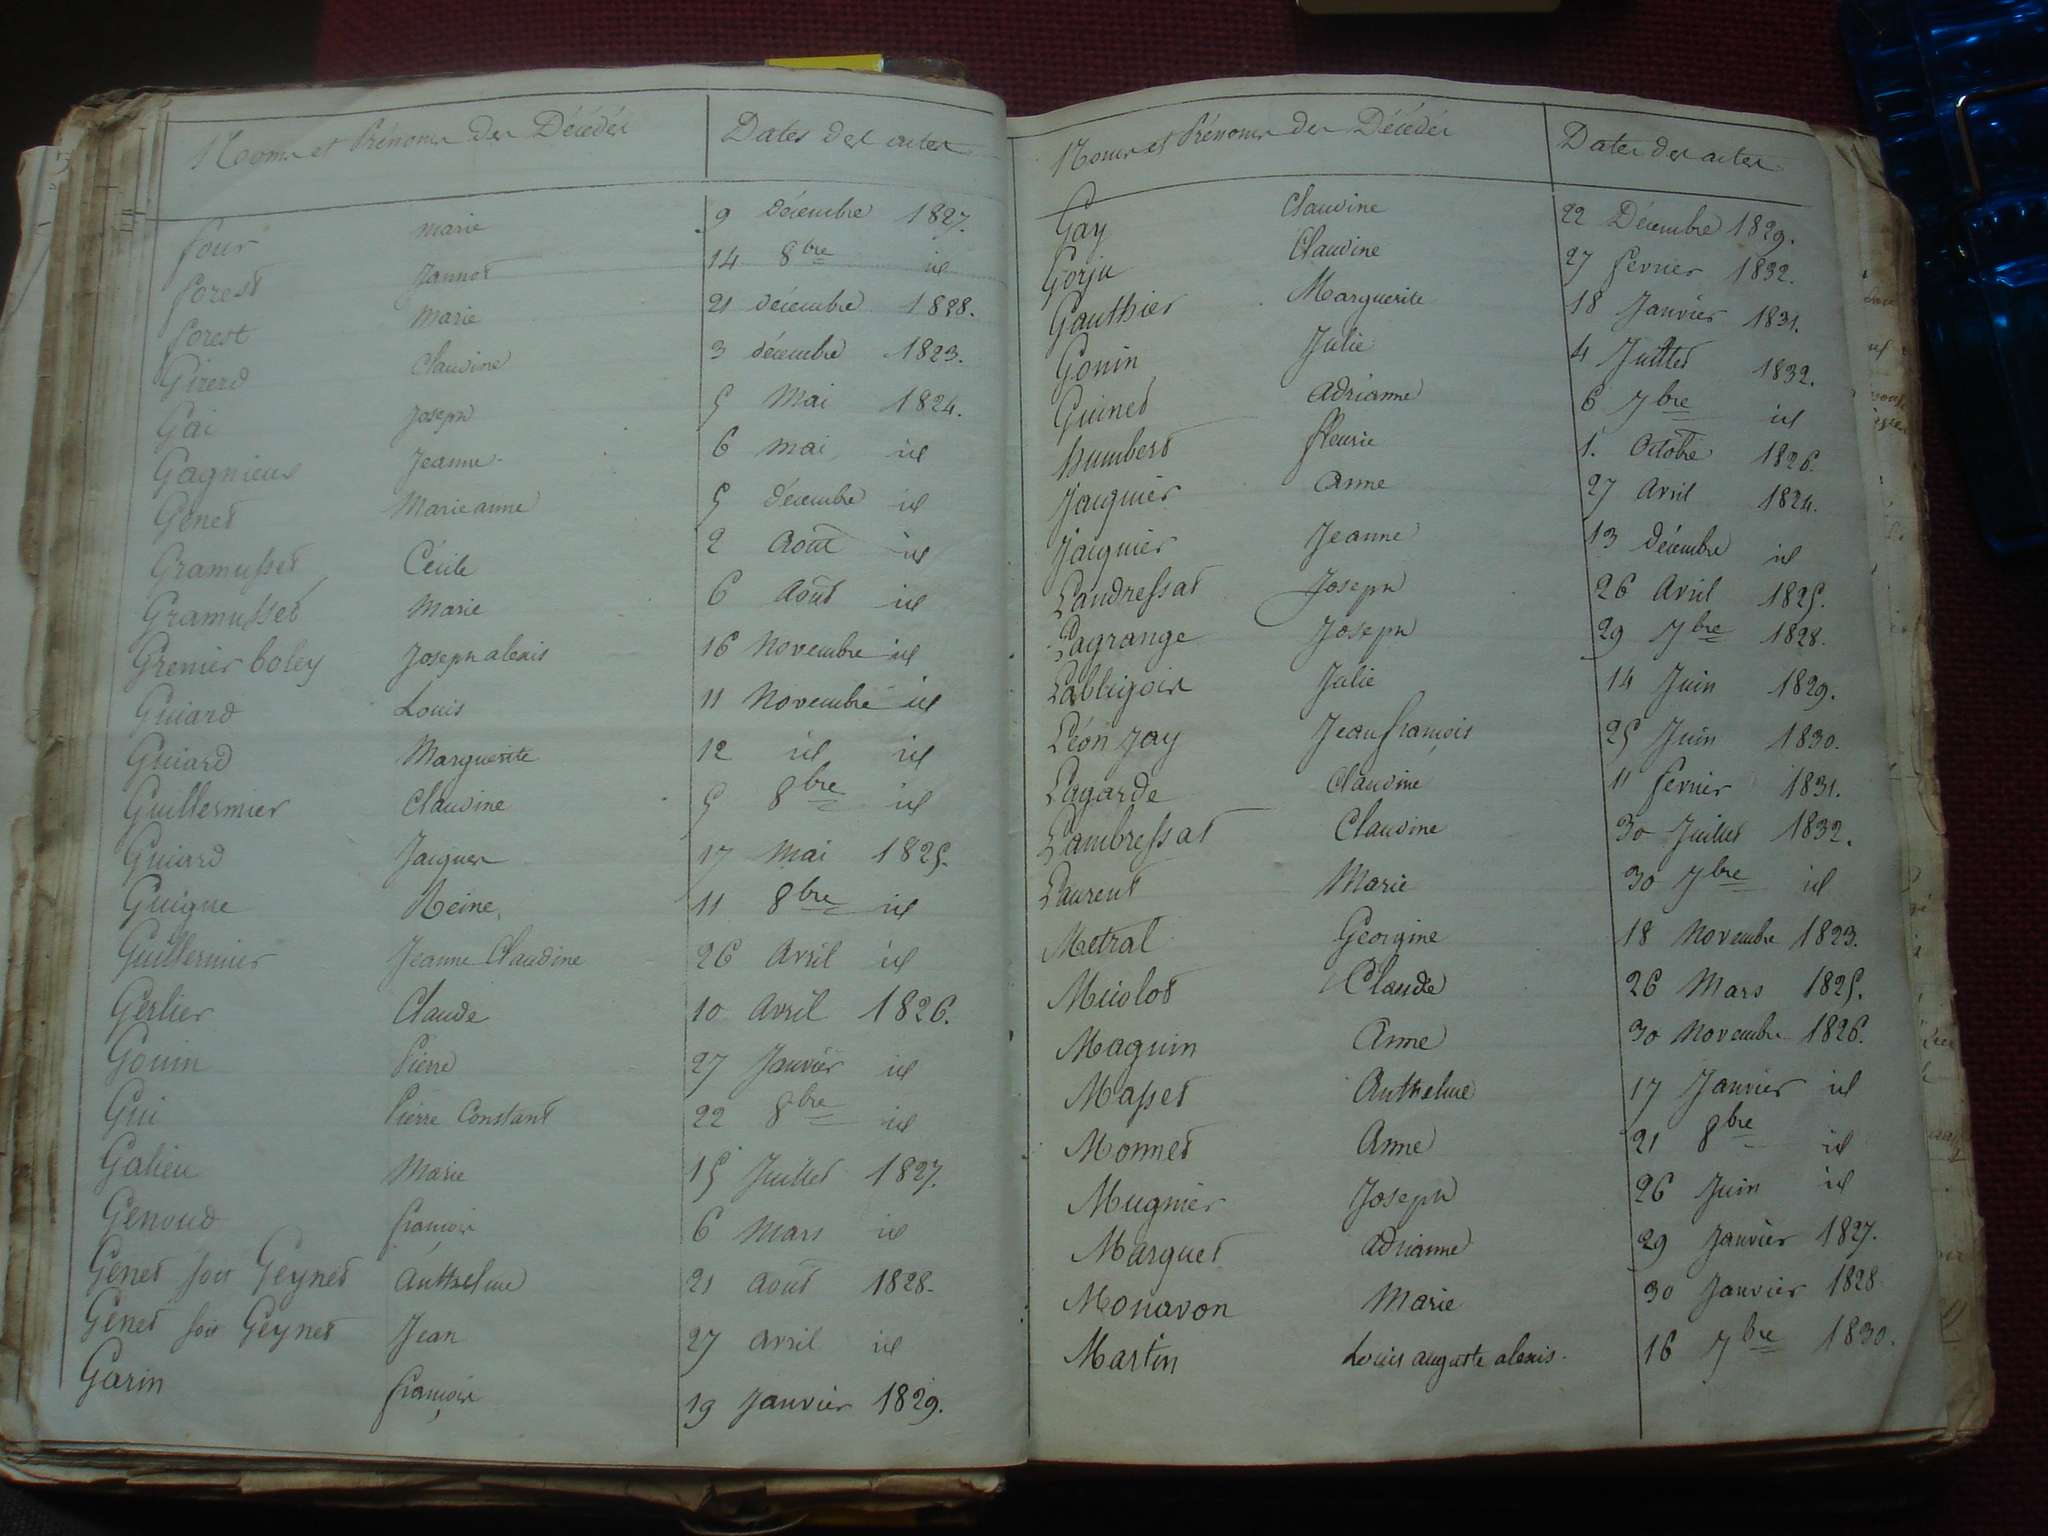 Noms et Prénoms des Décédés Dates des actes
four marie 9 décembre 1827.
forest Jannot 14 8bre id
forest marie 21 décembre 1828.
Girerd claudine 3 décembre 1823.
Gai Joseph 5 Mai 1824.
Gagnieux Jeanne 6 mai id
Genet Marie anne 5 décembre id
Gramusset Cécile 2 Août id
Gramusset Marie 6 Août id
Grenier boley Joseph alexis 16 Novembre id
Guiard Louis 11 Novembre id
Guiard Marguerite 12 id id
Guillermier Claudine 5 8bre id
Guiard Jacques 17 Mai 1825.
Guigue Reine 11 8bre id
Guillermier Jeanne Claudine 26 Avril id
Gerlier Claude 10 Avril 1826.
Gouin Pierre 27 Janvier id
Gui Pierre Constant 22 8bre id
Galieu Marie 15 Juillet 1827.
Genoud françois 6 Mars id
Genet soit Geynet Anthelme 21 Août 1828.
Genet soit Geynet Jean 27 avril id
Garin françois 19 Janvier 1829.
Noms et Prénoms des Décédés Dates des actes
Gay Claudine 22 Décembre 1829.
Gorju Claudine 27 fevrier 1832.
Gauthier Marguerite 18 Janvier 1831.
Gonin Julie 4 Juillet 1832.
Guinet Adrianne 6 7bre id
humbert fleurie 1. Octobre 1826.
Jacquier Anne 27 Avril 1824.
Jacquier Jeanne 13 décembre id
Landressat Joseph 26 Avril 1825.
Lagrange Joseph 29 7bre 1828.
Julie 14 Juin 1829.
Léon Jay Jean françois 25 Juin 1830.
Lagarde Claudine 11 fevrier 1831.
Lambressat Claudine 30 Juillet 1832.
Laurent Marie 30 7bre id
Metral Georgine 18 Novembre 1823.
Miolot Claude 26 Mars 1825.
Maguin Anne 30 Novembre 1826.
Masset Anthelme 17 Janvier id
Monnet Anne 21 8bre id
Mugnier Joseph 26 Juin id
Marquet Adrianne 29 Janvier 1827.
Monavon Marie 30 Janvier 1828
Martin Louis auguste alexis. 16 7bre 1830.